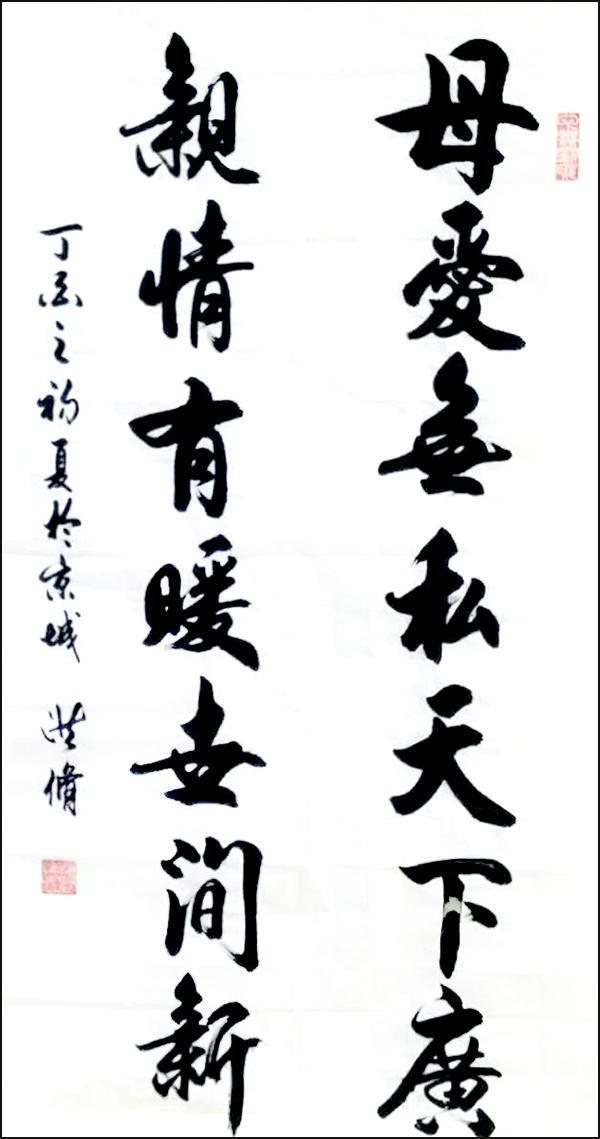 母愛無私天下廣
親情有暖世間新
丁酉之初夏於京城 洪脩